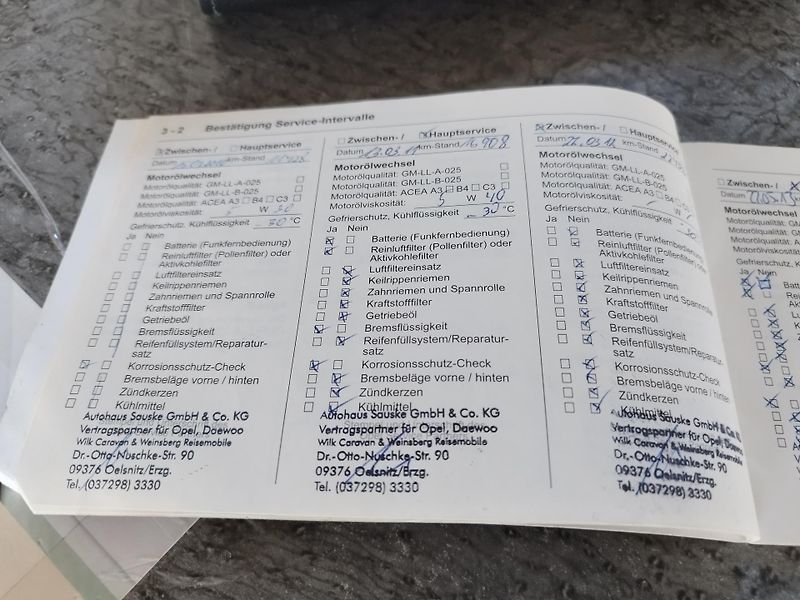 3 - 2 Bestätigung Service-Intervalle
Zwischen- / Hauptservice
Datum km-Stand
Motorölwechsel
Motorölqualität: GM-LL-A-025
Motorölqualität: GM-LL-B-025
Motorölqualität: ACEA A3 B4 C3
Motorölviskosität: W
Gefrierschutz, Kühlflüssigkeit 30 °C
Ja Nein
Batterie (Funkfernbedienung)
Reinluftfilter (Pollenfilter) oder
Aktivkohlefilter
Luftfiltereinsatz
Keilrippenriemen
Zahnriemen und Spannrolle
Kraftstofffilter
Getriebeöl
Bremsflüssigkeit
Reifenfüllsystem/Reparatur-
satz
Korrosionsschutz-Check
Bremsbeläge vorne / hinten
Zündkerzen
Kühlmittel
Autohaus Sauske GmbH & Co. KG
Vertragspartner für Opel, Daewoo
Wilk Caravan & Weinsberg Reisemobile
Dr.-Otto-Nuschke-Str. 90
09376 Oelsnitz/Erzg.
Tel. (037298) 3330
Zwischen- / Hauptservice
Datum km-Stand 16 908
Motorölwechsel
Motorölqualität: GM-LL-A-025
Motorölqualität: GM-LL-B-025
Motorölqualität: ACEA A3 B4 C3
Motorölviskosität: 5 W 40
Gefrierschutz, Kühlflüssigkeit - 30 °C
Ja Nein
Batterie (Funkfernbedienung)
Reinluftfilter (Pollenfilter) oder
Aktivkohlefilter
Luftfiltereinsatz
Keilrippenriemen
Zahnriemen und Spannrolle
Kraftstofffilter
Getriebeöl
Bremsflüssigkeit
Reifenfüllsystem/Reparatur-
satz
Korrosionsschutz-Check
Bremsbeläge vorne / hinten
Zündkerzen
Kühlmittel
Autohaus Sauske GmbH & Co. KG
Vertragspartner für Opel, Daewoo
Wilk Caravan & Weinsberg Reisemobile
Dr.-Otto-Nuschke-Str. 90
09376 Oelsnitz/Erzg.
Tel. (037298) 3330
Zwischen- / Hauptservice
Datum km-Stand
Motorölwechsel
Motorölqualität: GM-LL-A-025
Motorölqualität: GM-LL-B-025
Motorölqualität: ACEA A3 B4 C3
Motorölviskosität: W
Gefrierschutz, Kühlflüssigkeit
Ja Nein
Batterie (Funkfernbedienung)
Reinluftfilter (Pollenfilter) oder
Aktivkohlefilter
Luftfiltereinsatz
Keilrippenriemen
Zahnriemen und Spannrolle
Kraftstofffilter
Getriebeöl
Bremsflüssigkeit
Reifenfüllsystem/Reparatur-
satz
Korrosionsschutz-Check
Bremsbeläge vorne / hinten
Zündkerzen
Kühlmittel
Autohaus Sauske GmbH & Co. KG
Vertragspartner für Opel,
Wilk Caravan & Weinsberg Reisemobile
Dr.-Otto-Nuschke-Str. 90
09376 Oelsnitz/Erzg.
Tel. (037298) 3330
Zwischen- /
Datum
Motorölwechsel
Ja Nein